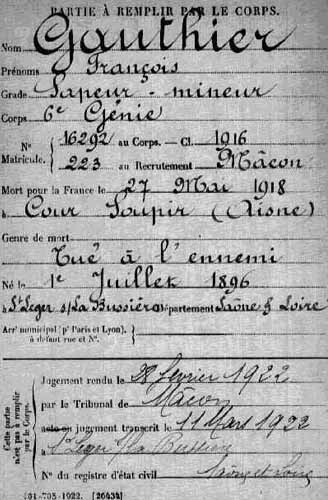 PARTIE À REMPLIR PAR LE CORPS.
Nom Gauthier
Prénoms François
Grade Sapeur-mineur
Corps 6e Génie
N° Matricule. 16292 au Corps. — Cl. 1916
223 au Recrutement Mâcon
Mort pour la France le 27 Mai 1918
à Cour Soupir (Aisne)
Genre de mort Tué à l'ennemi
Né le 1e Juillet 1896
à St Leger s/La Bussière Département Saône & Loire
Arrt municipal (pr Paris et Lyon),
à défaut rue et N°.
Cette partie n'est pas à remplir par le Corps.
Jugement rendu le 28 février 1922
par le Tribunal de Macon
acte ou jugement transcrit le 11 Mars 1922
à St Leger s/ la Bussière
N° du registre d'état civil Saone et Loire
[26434]